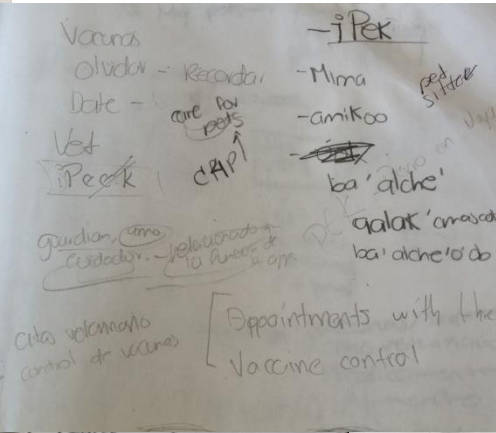 Vacunas
Olvidar - Recordar
Date -
Vet
iPeek
care for
pets
CAP
guardian, amo
cuidador. - relacionado a
la funcion de
la app
citas veterinario
control de vacunas
- iPek
- Mima
- amikoo
pet
sitter
ba'alche'
aalak'
ba'alche'o'ob
Appointments with the
Vaccine control